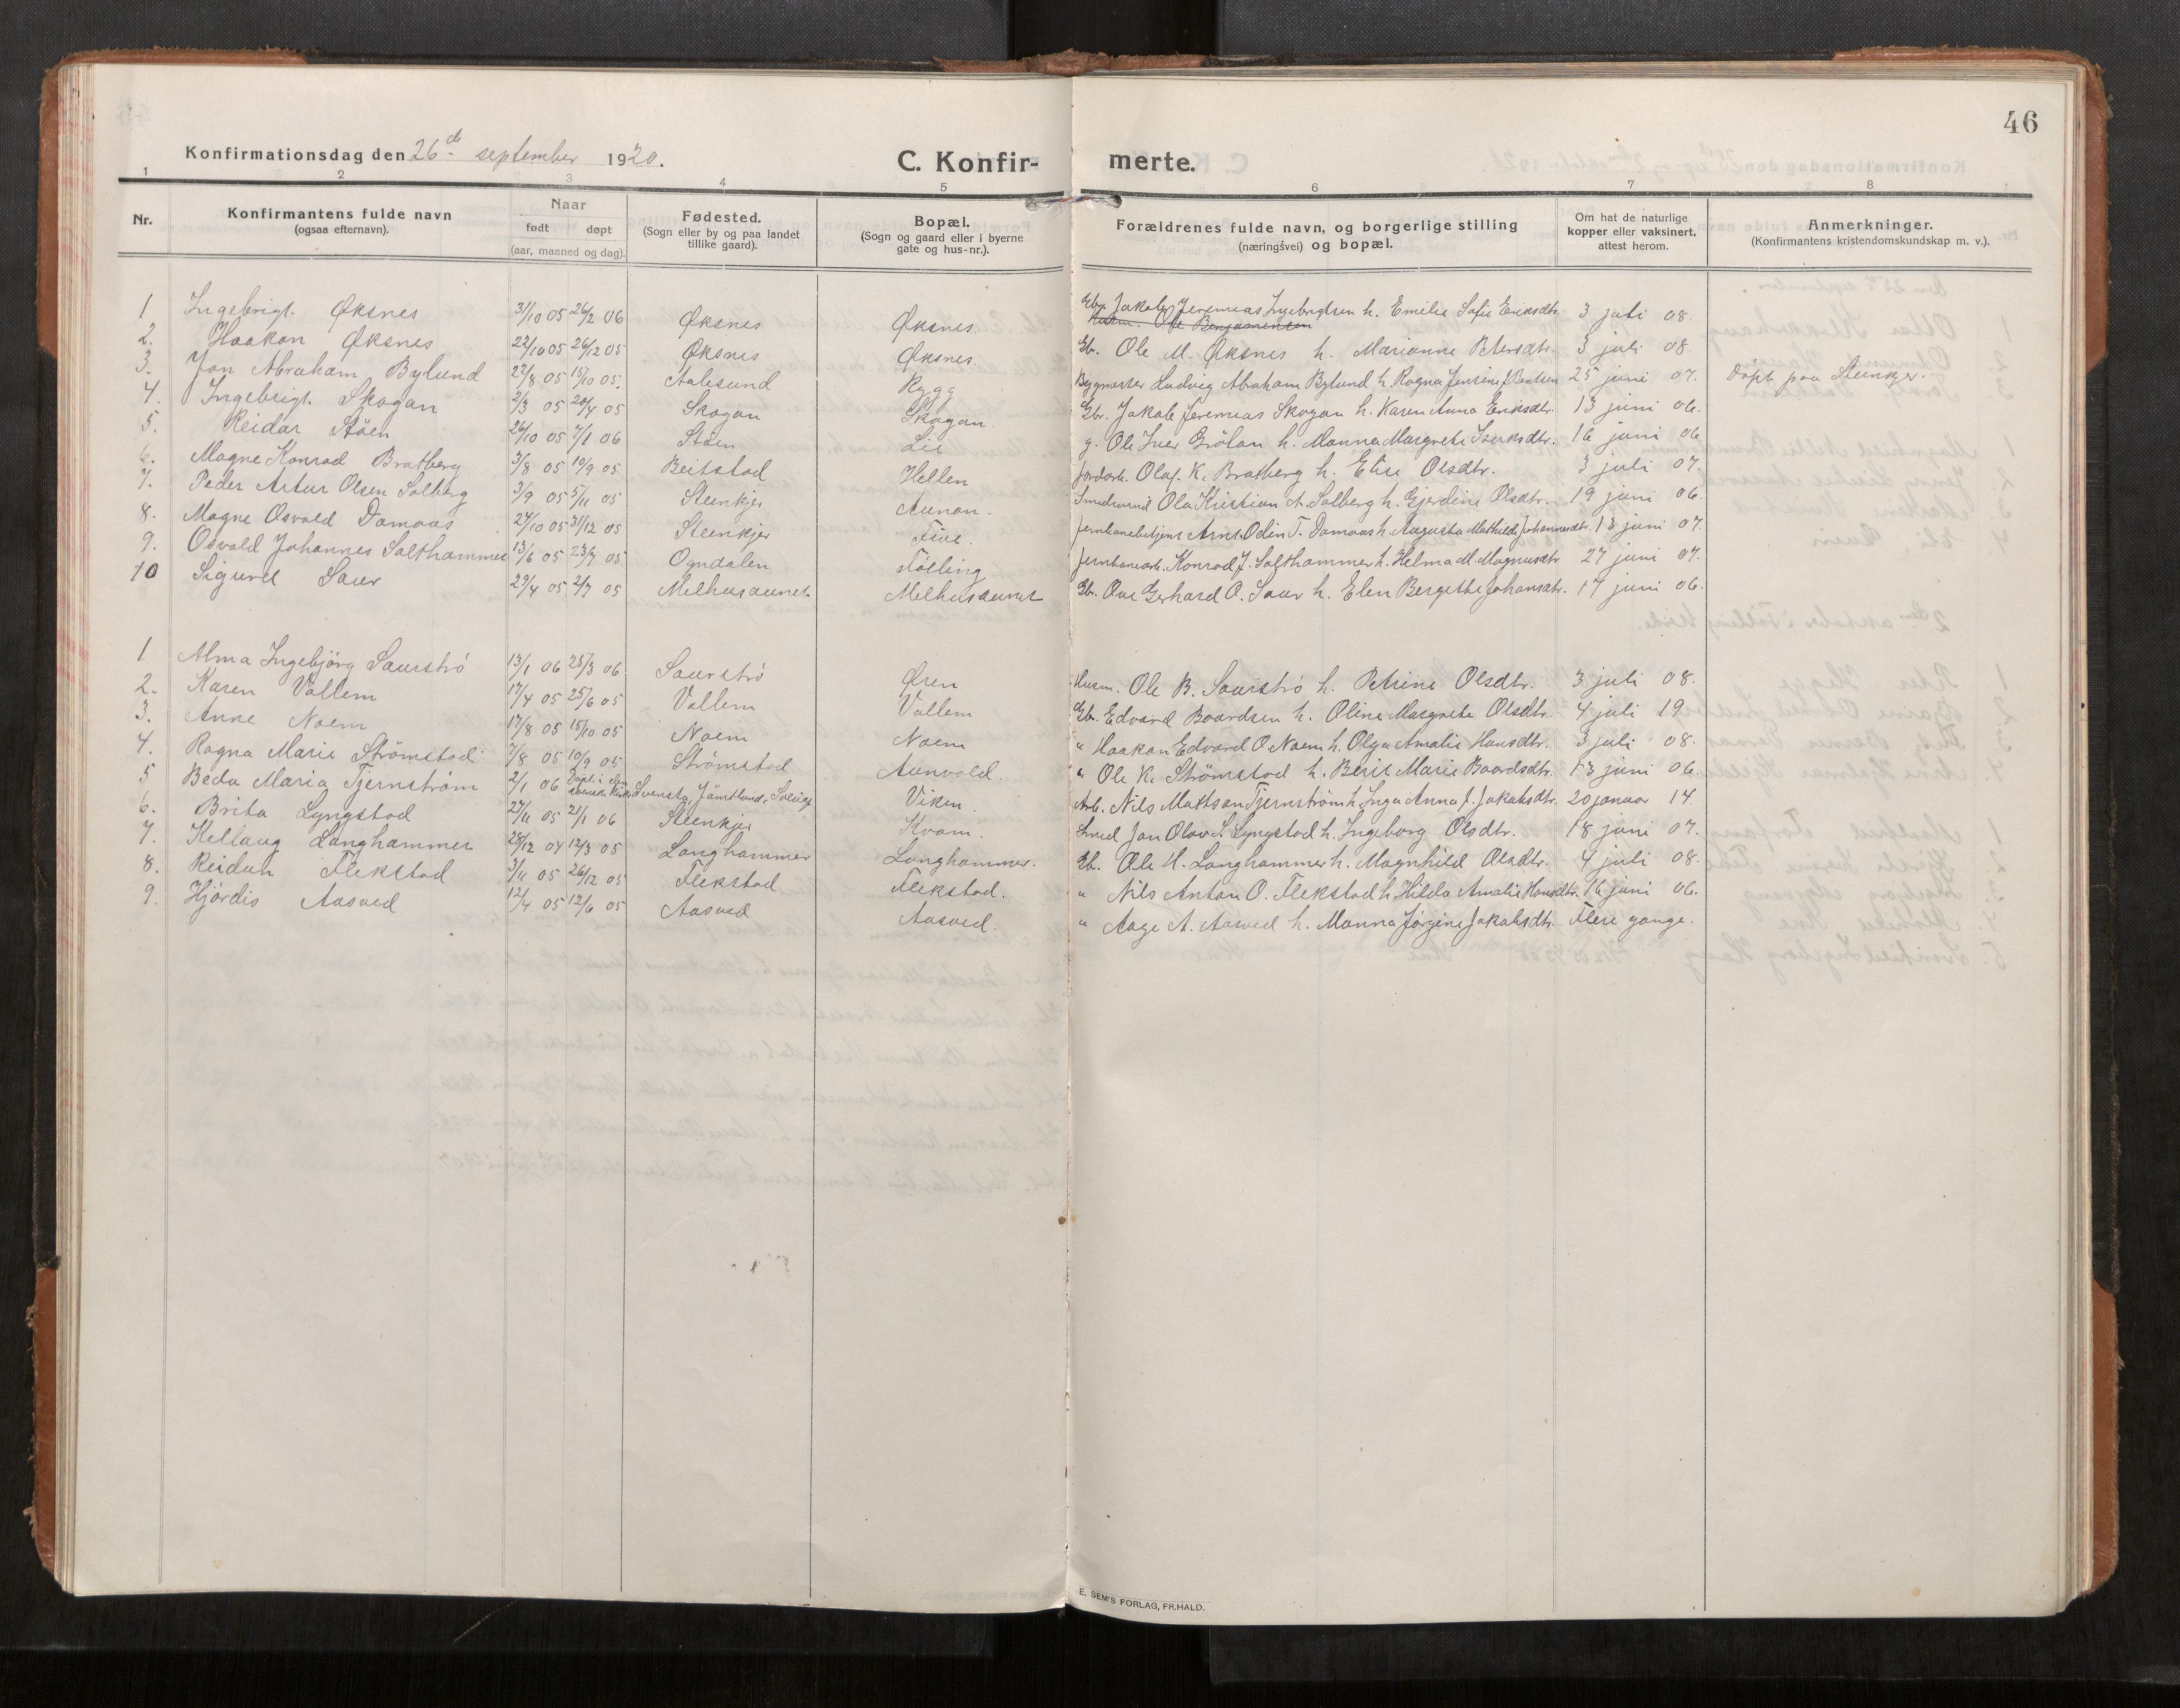 46
Konfirmationsdag den 26de september 1920.
C. Konfir-
merte.
1 2 3 4 5 6 7 8
Nr.
Konfirmantens fulde navn
(ogsaa efternavn).
Naar
født døpt
(aar, maaned og dag).
Fødested.
(Sogn eller by og paa landet
tillike gaard).
Bopæl.
(Sogn og gaard eller i byerne
gate og hus-nr.).
Forældrenes fulde navn, og borgerlige stilling
(næringsvei) og bopæl.
Om hat de naturlige
kopper eller vaksinert,
attest herom.
Anmerkninger.
(Konfirmantens kristendomskundskap m. v.).
1 Ingebrigt Øksnes 31/10 05 26/2 06 Øksnes Øksnes Gbr. Jakob Jeremias Ingebrigtsen h. Emilie Sofie Eriksdtr. 3 juli 08.
Husm. Ole Benjaminsen
2. Haakon Øksnes 22/10 05 26/12 05 Øksnes Øksnes. Gb. Ole M. Øksnes h. Marianne Petersdtr. 3 juli 08
3. Jon Abraham Bylund 22/8 05 15/10 05. Aalesund Rygg Bygmester Ludvig Abraham Bylund h. Ragna Jensine J Bentsen 25 juni 07. Døpt paa Steinkjer.
4. Ingebrigt Skogan 2/3 05 20/4 05 Skogan Skogan. Gbr. Jakob Jeremias Skogan h. Karen Anna Eriksdtr. 13 juni 06.
5. Reidar Støen 26/10 05 7/1 06 Støen Lie g. Ole Iver Grôtan h. Manna Margrete Iserksdtr. 16 juni 06
6. Magne Konrad Bratberg 3/8 05 10/9 05 Beitstad Hellem Jordarb. Olaf. K. Bratberg h. Elise Olsdtr. 3 juli 07.
7. Peder Artur Olsen Solberg 3/9 05 5/11 05 Steenkjer Aunan. Smedsvend Ole Kristian A. Solberg h. Gjerdine Olsdtr. 19 juni 06.
8. Magne Osvald Damaas 24/10 05 31/12 05 Steenkjer Five. Jernbanebetjent Arnt Odin T. Damaas h. Augusta Mathilde Johannesdtr. 13 juni 07.
9. Osvald Johannes Salthammer 13/6 05 23/7 05 Ogndalen Følling Jernbanearb. Konrad J. Salthammer h. Helma M. Magnusdtr 27 juni 07.
10 Sigurd Saur 29/4 05 2/7 05 Melhusaunet Melhusaunet Gb. Ove Gerhard O. Saur h. Elen Bergitte Johansdtr. 17 juni 06.
1 Alma Ingebjörg Saurströ 13/1 06 25/3 06 Saurströ Øren Husm. Ole B. Saurströ h. Petrine Olsdtr. 3 juli 08.
2. Karen Vallem 17/4 05 25/6 05 Vallem Vallem Gb. Edvard Baardsen h. Oline Margrete Olsdtr. 4 juli 19
3. Anne Naem 17/8 05 15/10 05 Naem Naem " Haakon Edvard O Naem h. Olga Amalie Hansdtr. 3 juli 08.
4. Ragna Marie Strömstad 7/8 05 10/9 05 Strömstad Aunvold. " Ole K. Strömstad h. Berit Marie Baardsdtr. 13 juni 06.
5 Beda Maria Tjernström 2/1 06 Döpt i den svenske kirke Svensta, Jämtland, Sverige Viken. Arb. Nils Mattsson Tjernström h. Inga Anna J. Jakobsdtr. 20 januar 14.
6. Brita Lyngstad 27/11 05 21/1 06 Steenkjer Kvam. Smed Jon Olav S. Lyngstad h. Ingeborg Olsdtr. 18 juni 07.
7. Kellaug Langhammer 28/12 04 12/3 05 Langhammer Langhammer. Gb. Ole M. Langhammer h. Magnhild Olsdtr. 4 juli 08.
8. Reidun Flekstad 3/11 05 26/12 05 Flekstad Flekstad. " Nils Anton O. Flekstad h. Hilda Amalie Hansdtr. 16 juni 06.
9. Hjördis Aasved 12/4 05 12/6 05 Aasved Aasved. " Aage A. Aasved h. Manna Jørgine Jakobsdtr. Flere gange.
E. SEM'S FORLAG, FR.HALD.